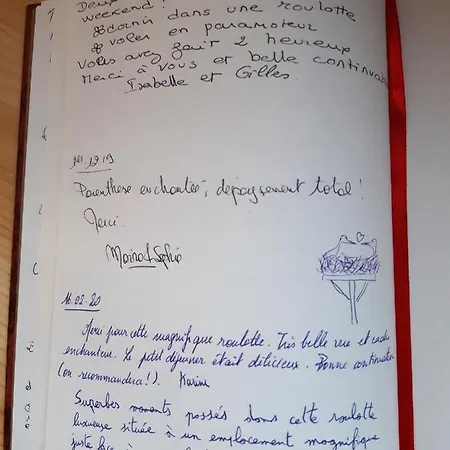 weekend!
dormir dans une roulotte
voler en paramoteur
Vous avez fait 2 heureux
Merci à vous et belle continuation
Isabelle et Gilles.
12.19
Parenthèse enchantée, dépaysement total!
Merci.
16.02.20
Merci pour cette magnifique roulotte. Très belle vue et cadre
enchanteur. Le petit déjeuner était délicieux. Bonne continuation
(on recommandera!). Karine
Superbes moments passés dans cette roulotte
luxueuse située à un emplacement magnifique
juste